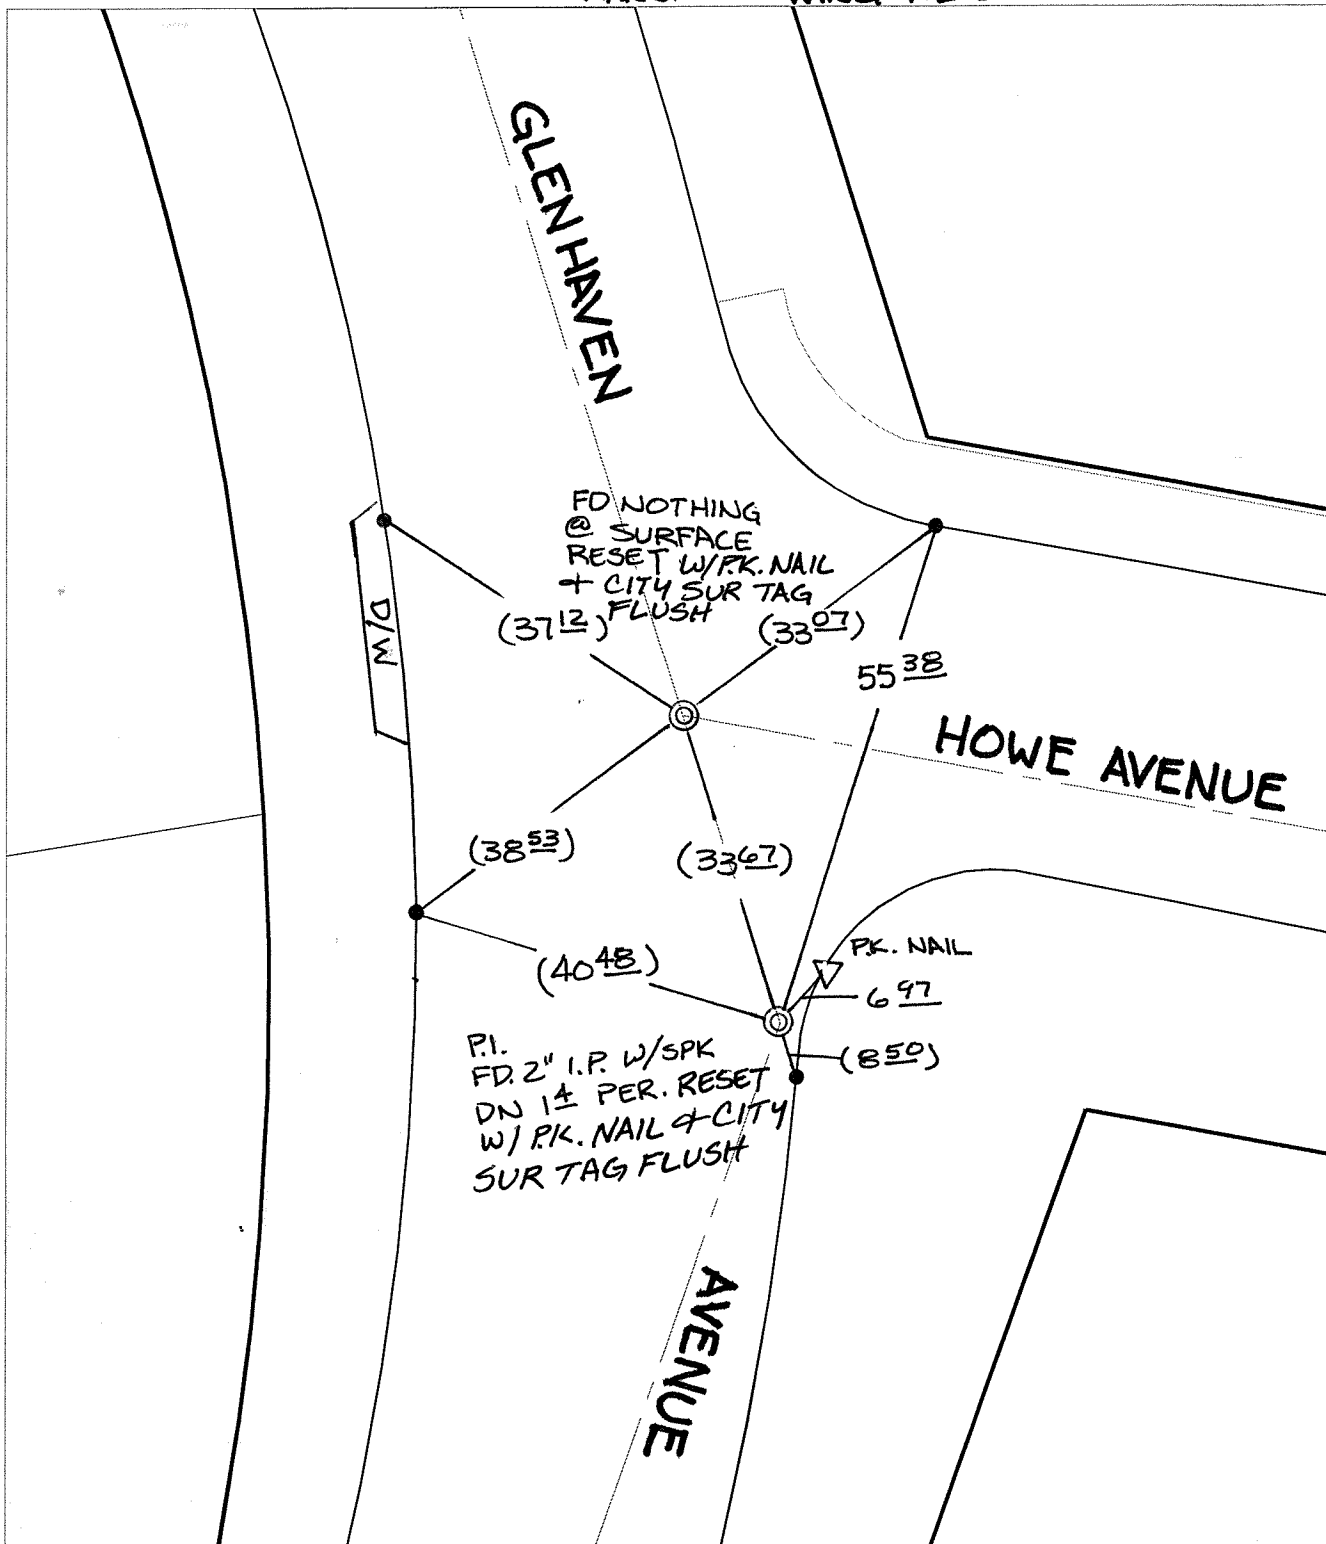 GLENHAVEN
FD NOTHING
@ SURFACE
RESET W/P.K. NAIL
& CITY SUR TAG
FLUSH
(37 12)
(33 07)
55 38
D/W
HOWE AVENUE
(38 53)
(33 67)
P.K. NAIL
(40 48)
6 97
(8 50)
P.I.
FD. 2" I.P. W/SPK
DN 1 4 PER. RESET
W/ P.K. NAIL & CITY
SUR TAG FLUSH
AVENUE